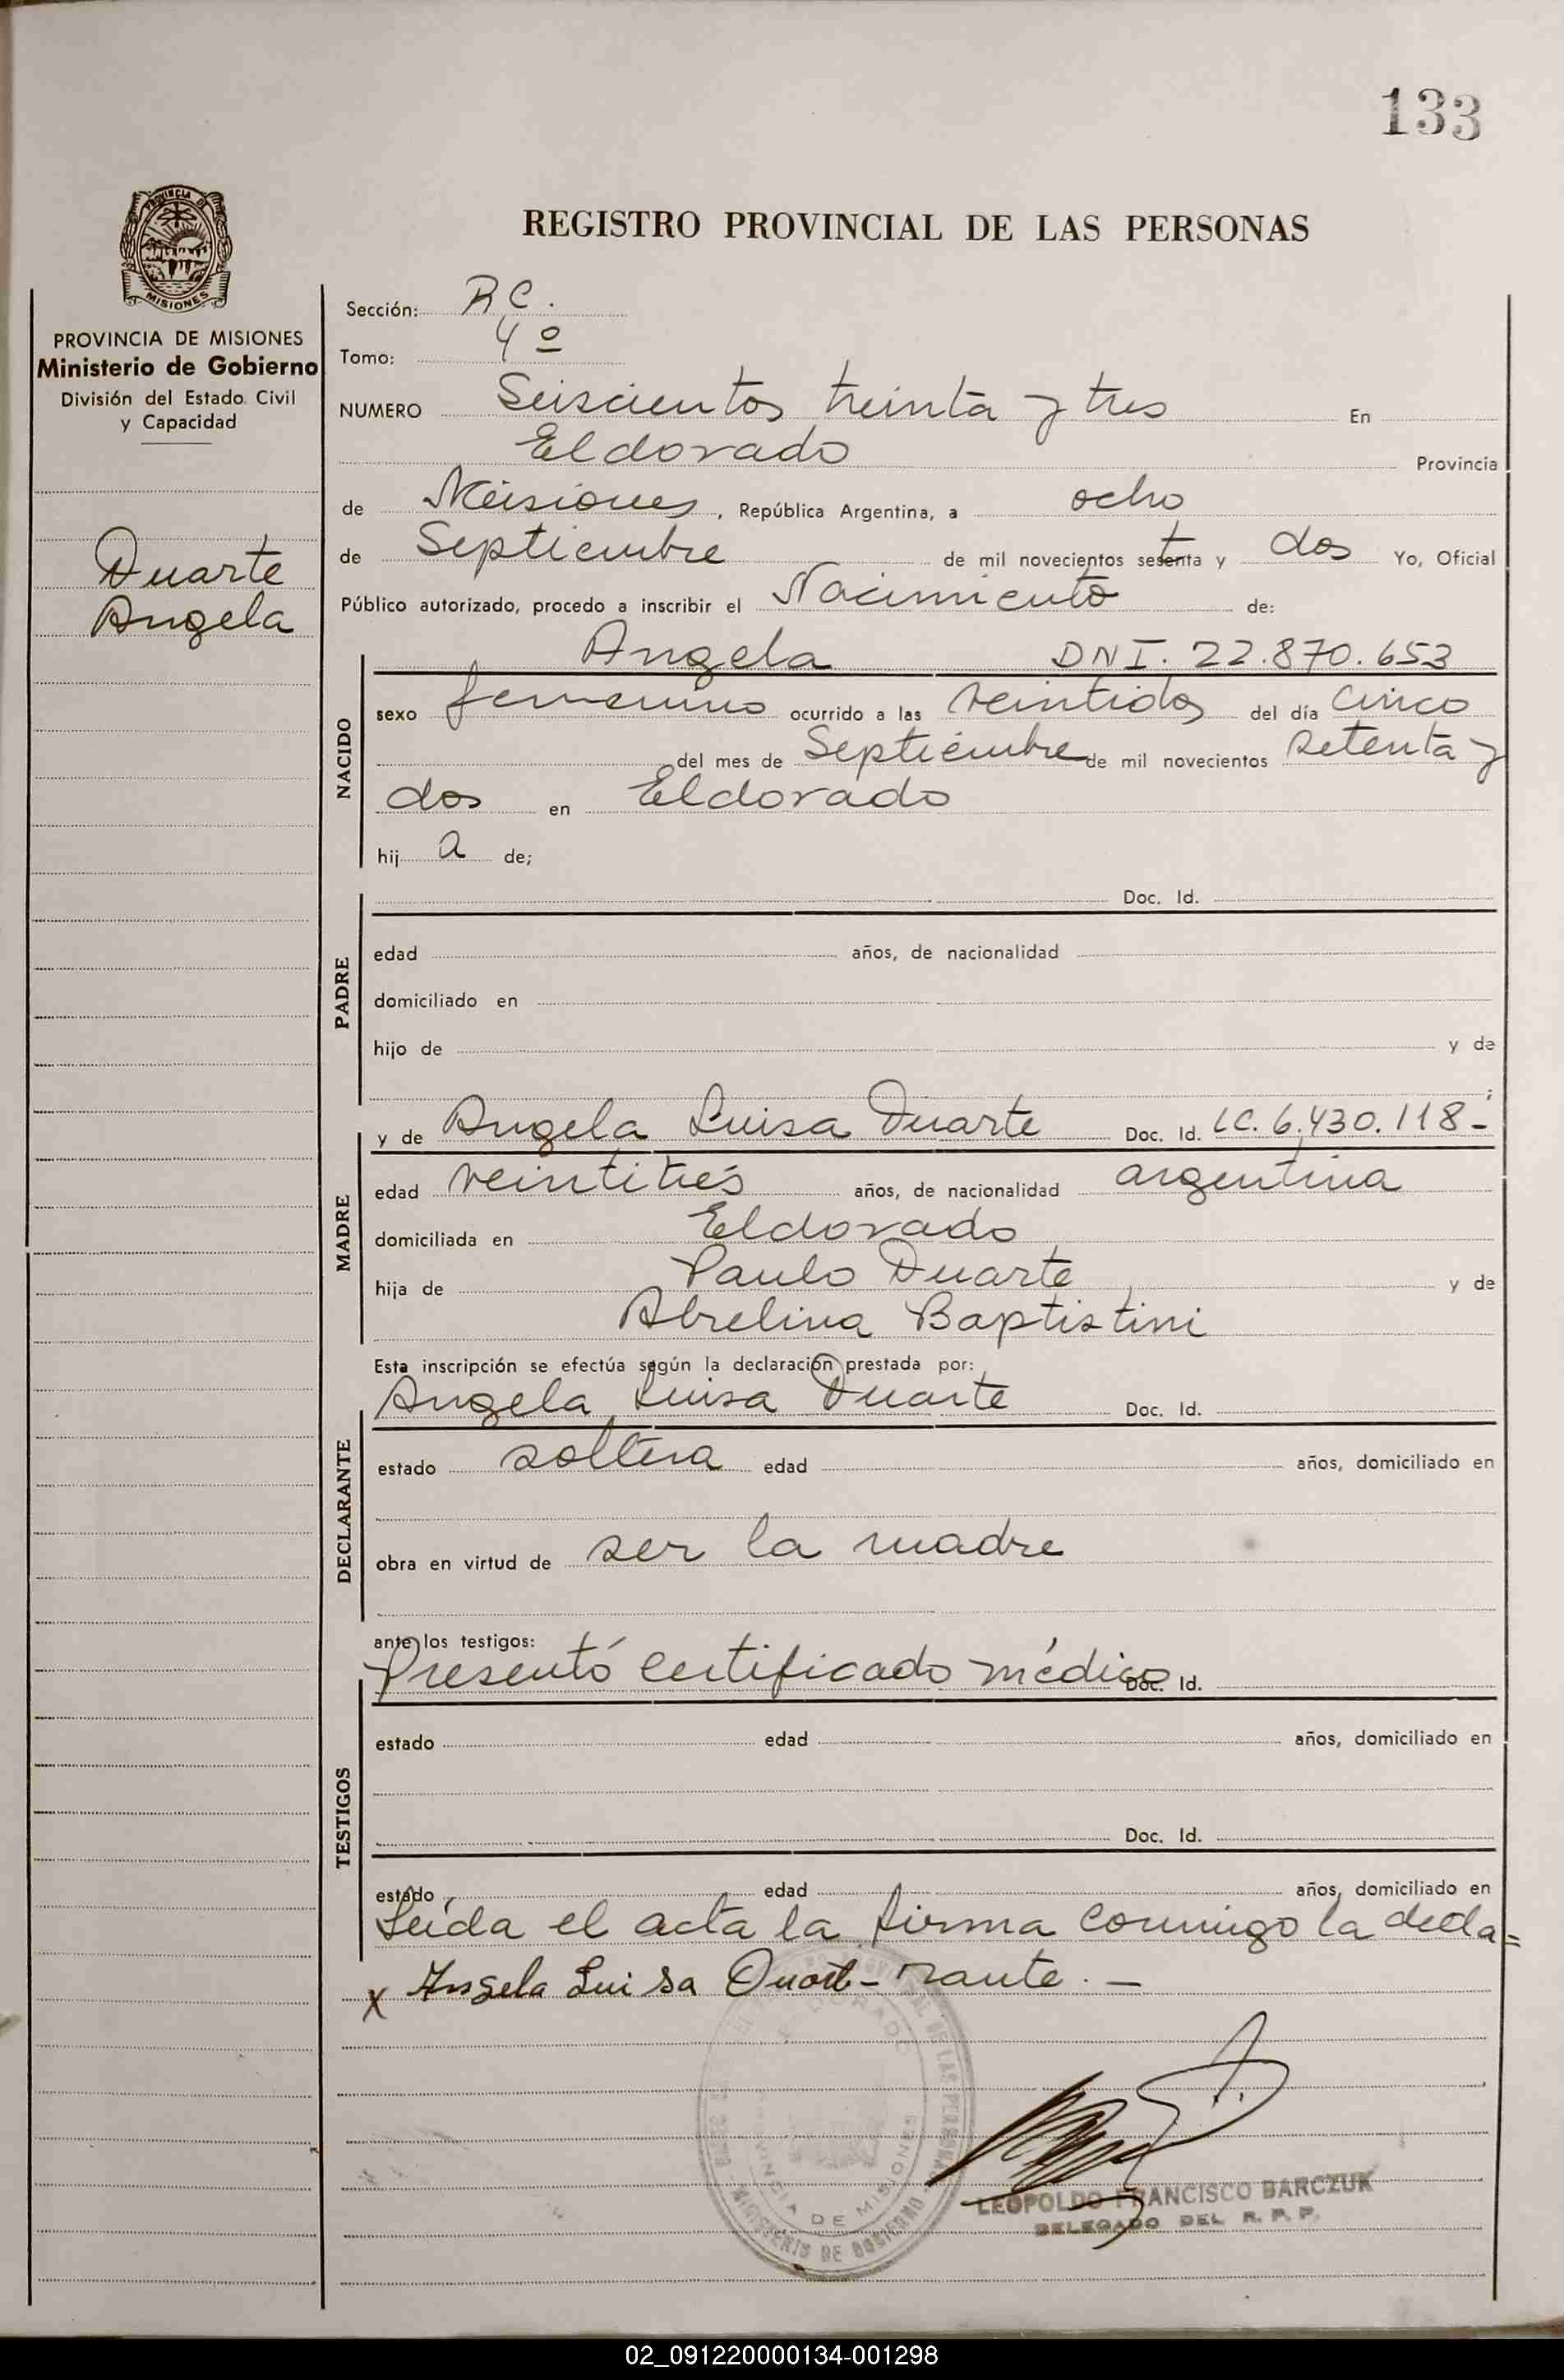 133
PROVINCIA DE
MISIONES
REGISTRO PROVINCIAL DE LAS PERSONAS
PROVINCIA DE MISIONES
Ministerio de Gobierno
División del Estado Civil
y Capacidad
Duarte
Angela
Sección: R C.
Tomo: 4º
NUMERO Seiscientos treinta y tres En
Eldorado Provincia
de Misiones, República Argentina, a ocho
de Septiembre de mil novecientos setenta y dos Yo, Oficial
Público autorizado, procedo a inscribir el Nacimiento de:
NACIDO
Angela DNI. 22.870.653
sexo femenino ocurrido a las veintidos del día cinco
del mes de Septiembre de mil novecientos setenta y
dos en Eldorado
hij a de;
PADRE
Doc. Id.
edad años, de nacionalidad
domiciliado en
hijo de y de
;
MADRE
y de Angela Luisa Duarte Doc. Id. LC. 6.430.118-
edad veintitrés años, de nacionalidad argentina
domiciliada en Eldorado
hija de Paulo Duarte y de
Abrelina Baptistini
Esta inscripción se efectúa según la declaración prestada por:
DECLARANTE
Angela Luisa Duarte Doc. Id.
estado soltera edad años, domiciliado en
obra en virtud de ser la madre
ante los testigos:
TESTIGOS
Presentó certificado médico Doc. Id.
estado edad años, domiciliado en
Doc. Id.
estado edad años, domiciliado en
Leída el acta la firma conmigo la decla=
x Angela Luisa Duart- rante. -
PROVINCIA DE MISIONES
MINISTERIO DE GOBIERNO
LEOPOLDO FRANCISCO BARCZUK
DELEGADO DEL R. P. P.
02_091220000134-001298